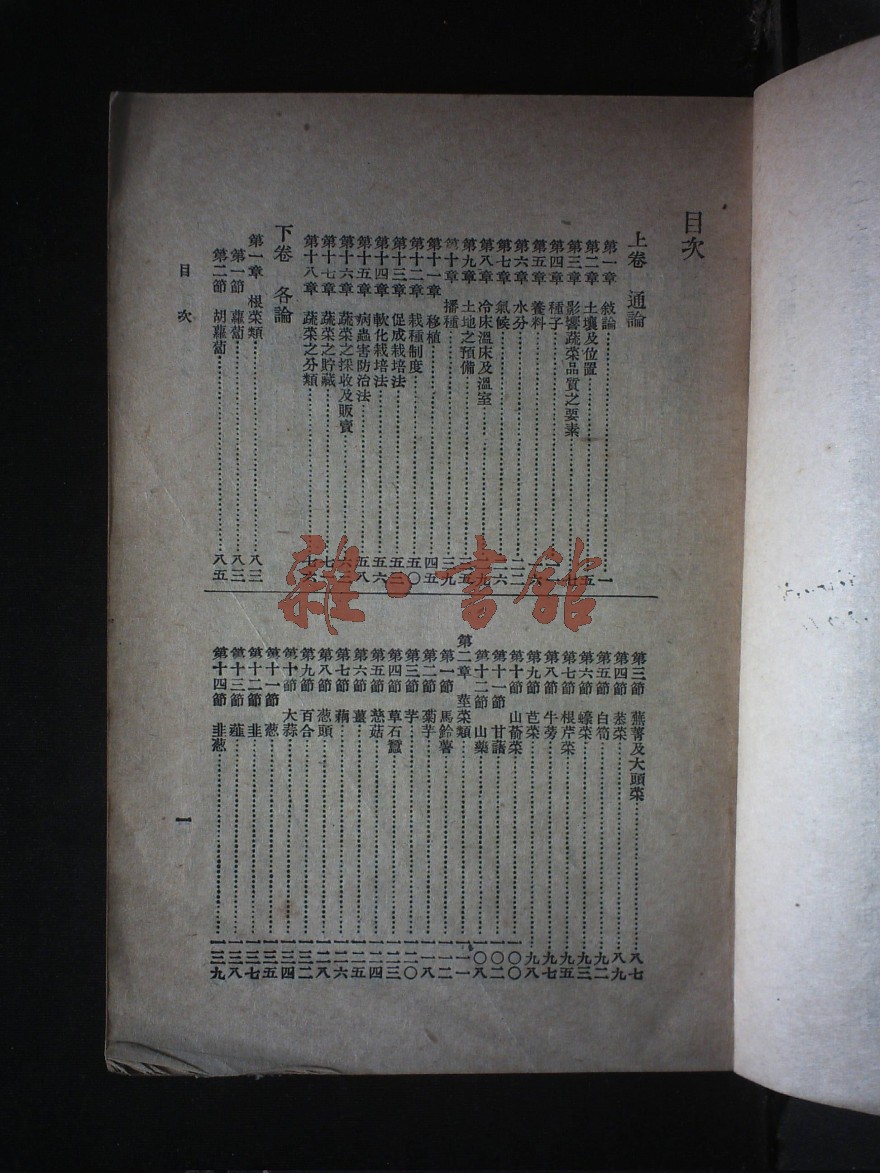 目次
上卷 通論
第一章 敘論……一
第二章 土壤及位置……五
第三章 影響蔬菜品質之要素……七
第四章 種子
第五章 養料
第六章 水分
第七章 氣候
第八章 冷床溫床及溫室
第九章 土地之預備
第十章 播種……三九
第十一章 移植……四五
第十二章 栽種制度……五〇
第十三章 促成栽培法……五三
第十四章 軟化栽培法……五六
第十五章 病蟲害防治法……五八
第十六章 蔬菜之採收及販賣
第十七章 蔬菜之貯藏
第十八章 蔬菜之分類……七六
下卷 各論
第一章 根菜類……八三
第一節 蘿蔔……八三
第二節 胡蘿蔔……八五
第三節 蕪菁及大頭菜……八七
第四節 菾菜……八九
第五節 白筍……九二
第六節 蠔菜……九三
第七節 根芹菜……九五
第八節 牛蒡……九七
第九節 芭菜……九八
第十節 山萮菜……一〇〇
第十一節 甘藷……一〇二
第十二節 山藥……一〇八
第二章 莖菜類……一一一
第一節 馬鈴薯……一一二
第二節 菊芋……一一八
第三節 芋……一二〇
第四節 草石蠶……一二三
第五節 慈菇……一二四
第六節 薑……一二五
第七節 藕……一二六
第八節 葱頭……一二八
第九節 百合……一三二
第十節 大蒜……一三四
第十一節 葱……一三五
第十二節 韭……一三七
第十三節 薤……一三八
第十四節 韭葱……一三九
目次
一
雜·書館